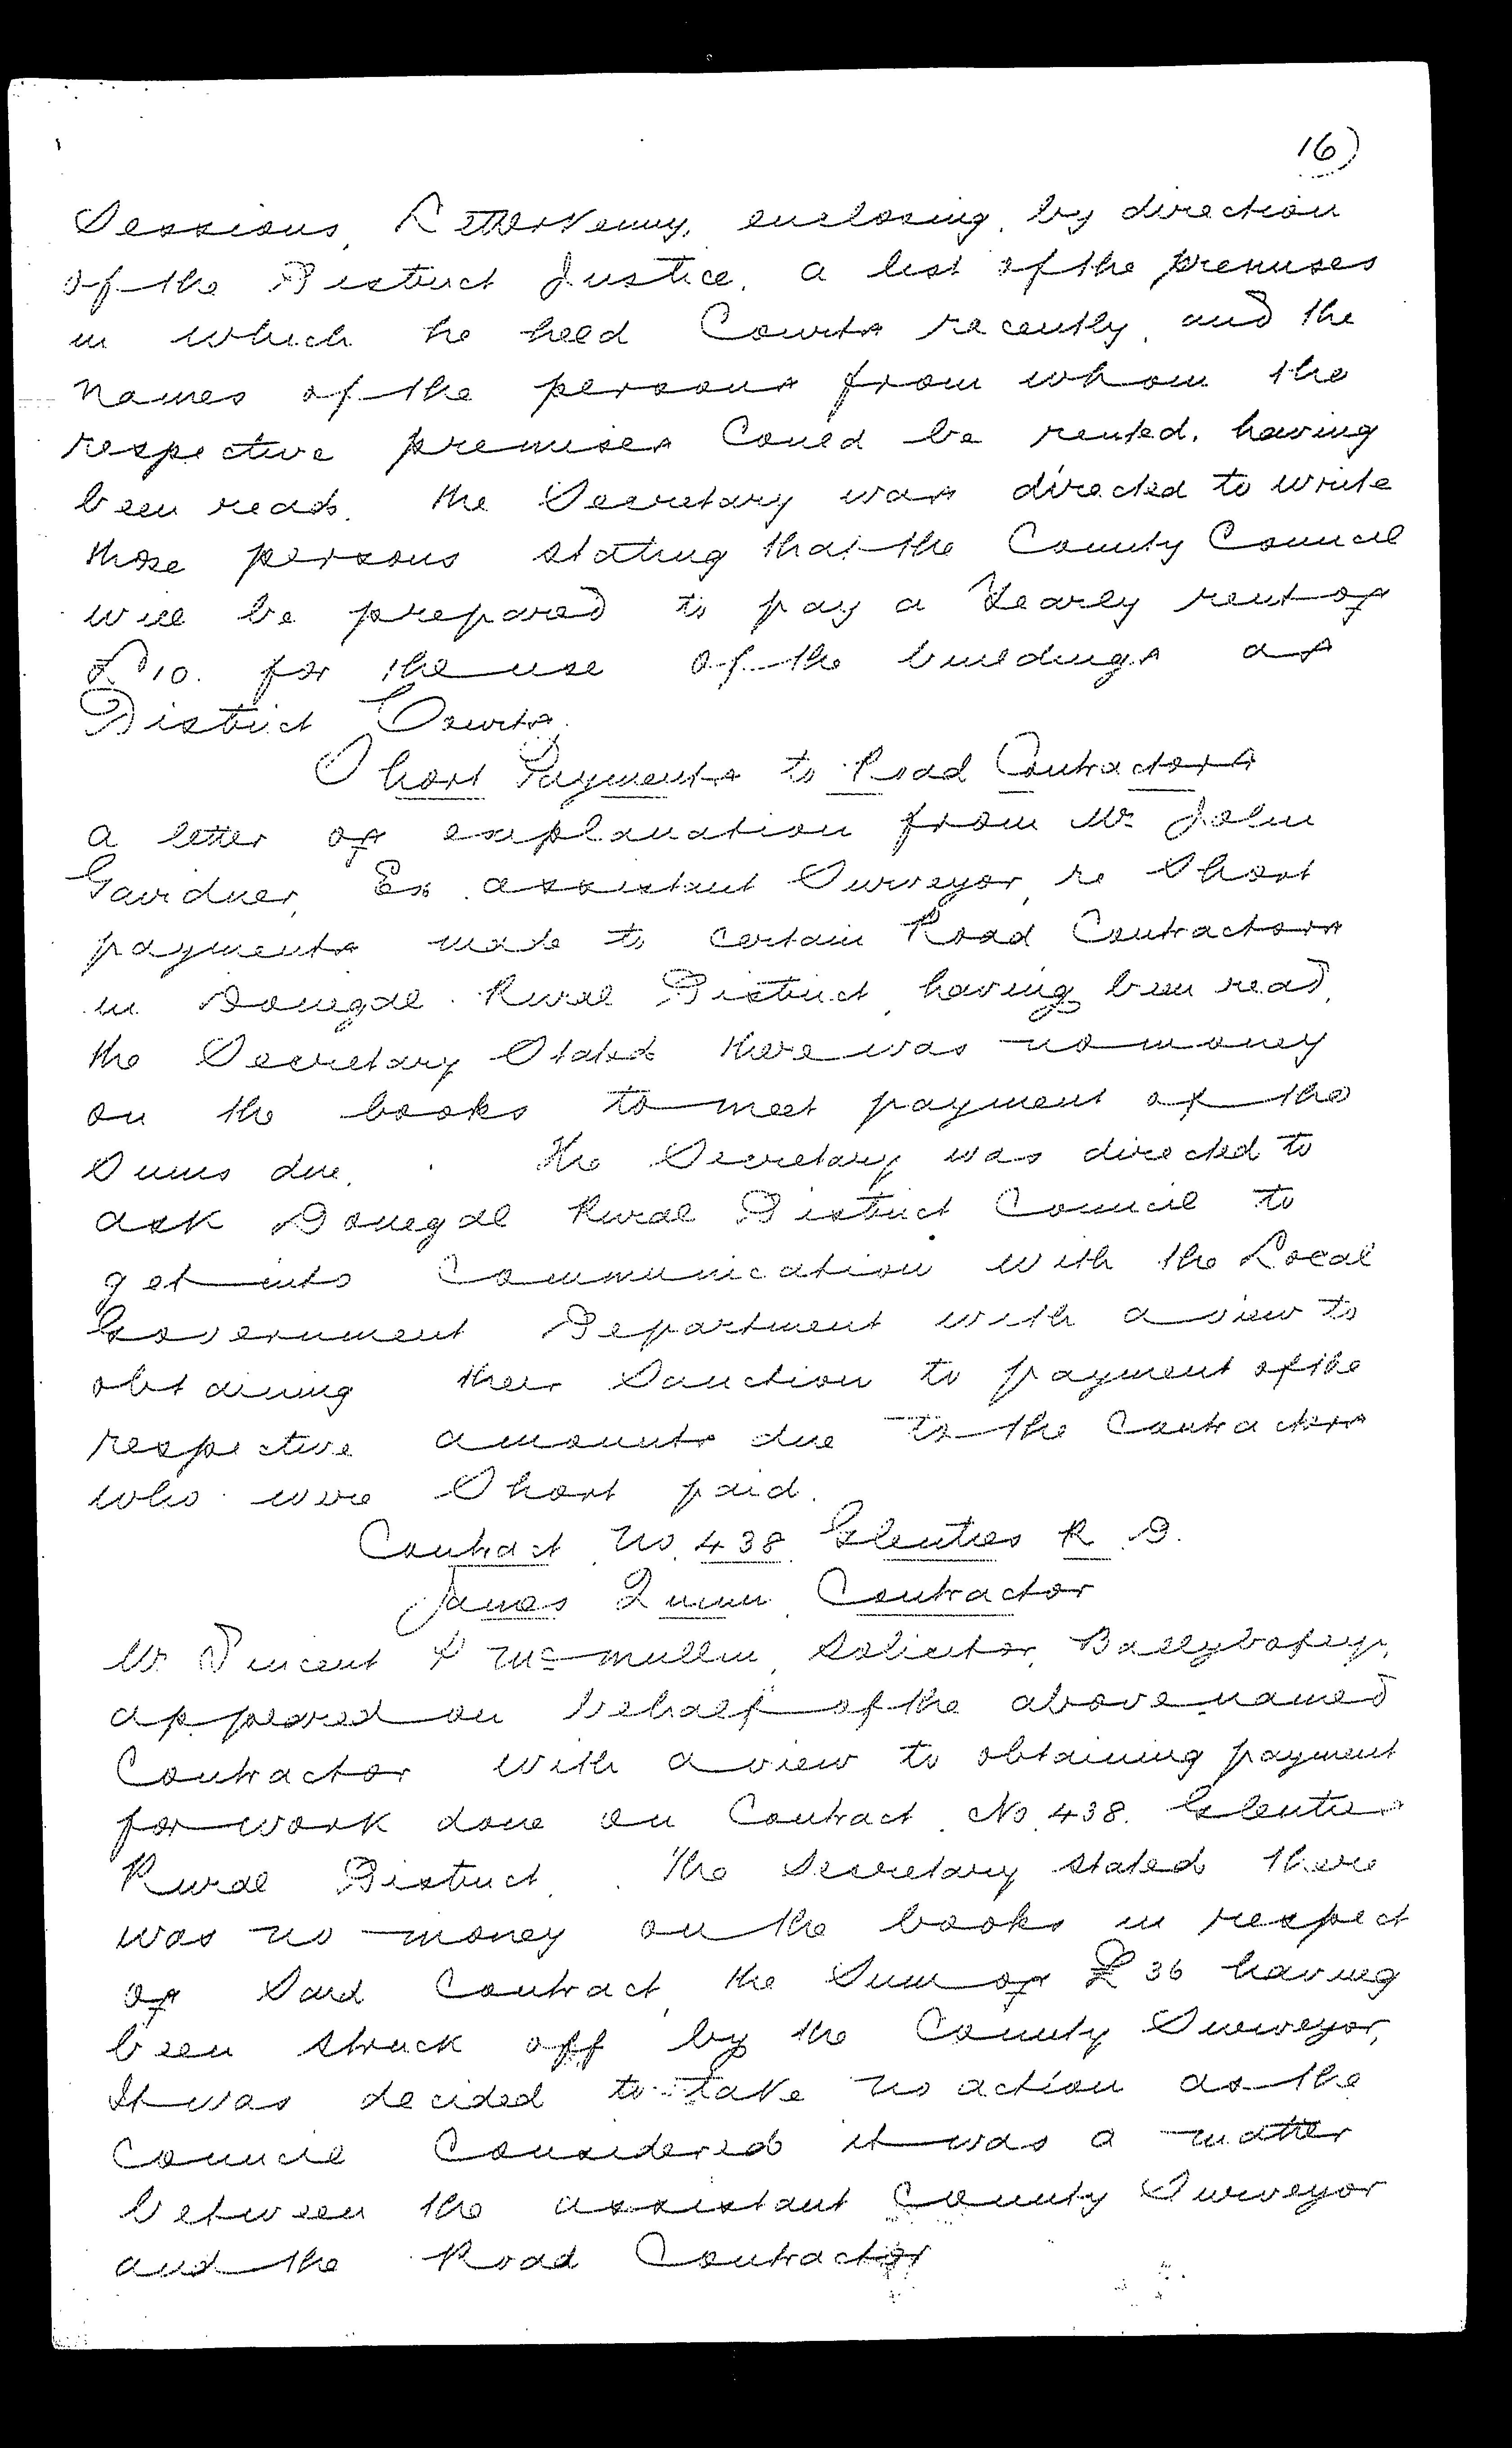 16)
Sessions, Letterkenny, enclosing, by direction
of the District Justice, a list of the premises
in which he held Courts recently, and the
names of the persons from whom the
respective premises Could be rented, having
been read, the Secretary was directed to write
those persons stating that the County Council
will be prepared to pay a Yearly rent of
£10. for the use of the buildings as
District Courts.
Short Payments to Road Contractors
a letter of explanation from Mr John
Gairdner, Ex assistant Surveyor, re Short
payments made to certain Road Contractors
in Donegal Rural District, having been read,
the Secretary Stated there was no money
on the books to meet payment of the
Sums due. The Secretary was directed to
ask Donegal Rural District Council to
get into Communication with the Local
Government Department with a view to
obtaining their Sanction to payment of the
respective amounts due to the Contractors
who were Short paid.
Contract No. 438 Glenties R. D.
James Quinn, Contractor
Mr Vincent P McMullin, Solicitor, Ballybofey,
appeared on behalf of the above named
Contractor with a view to obtaining payment
for work done on Contract No. 438. Glenties
Rural District. The Secretary stated there
was no money on the books in respect
of Said Contract, the Sum of £36 having
been struck off by the County Surveyor,
It was decided to take no action as the
Council Considered it was a matter
between the assistant County Surveyor
and the Road Contractor